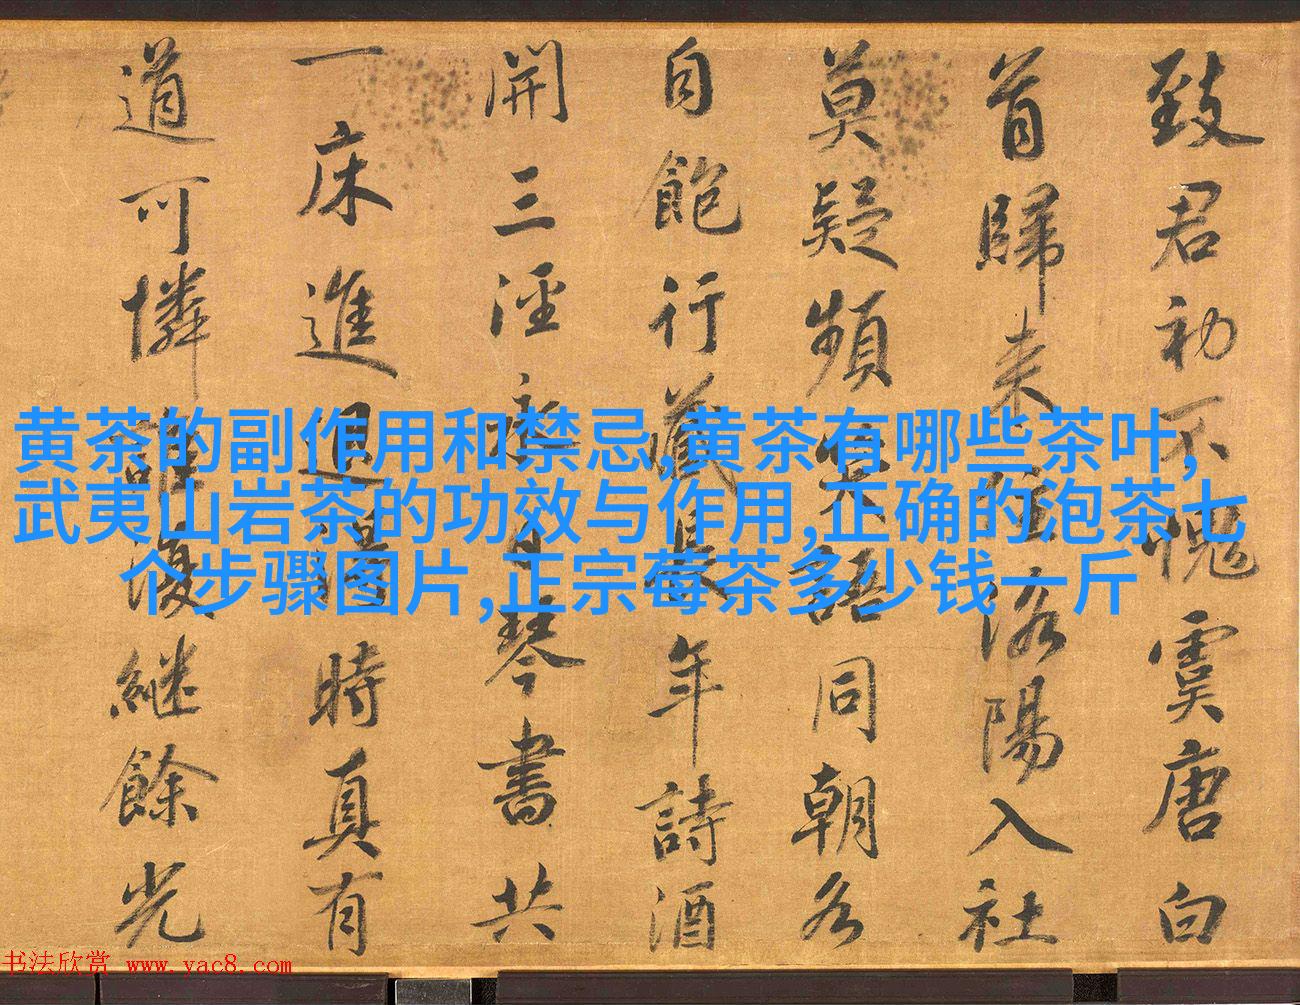 致君初不愧虞唐白
首歸来住洛陽入社
莫疑頻笑語同朝各
自飽行藏長年詩酒
開三涇永日琴書共
一床進退得時真有
道可憐誰復繼餘光
黄茶的副作用和禁忌,黄茶有哪些茶叶,
武夷山岩茶的功效与作用,正确的泡茶七
个步骤图片,正宗莓茶多少钱一斤
书法欣赏 www.yac8.com